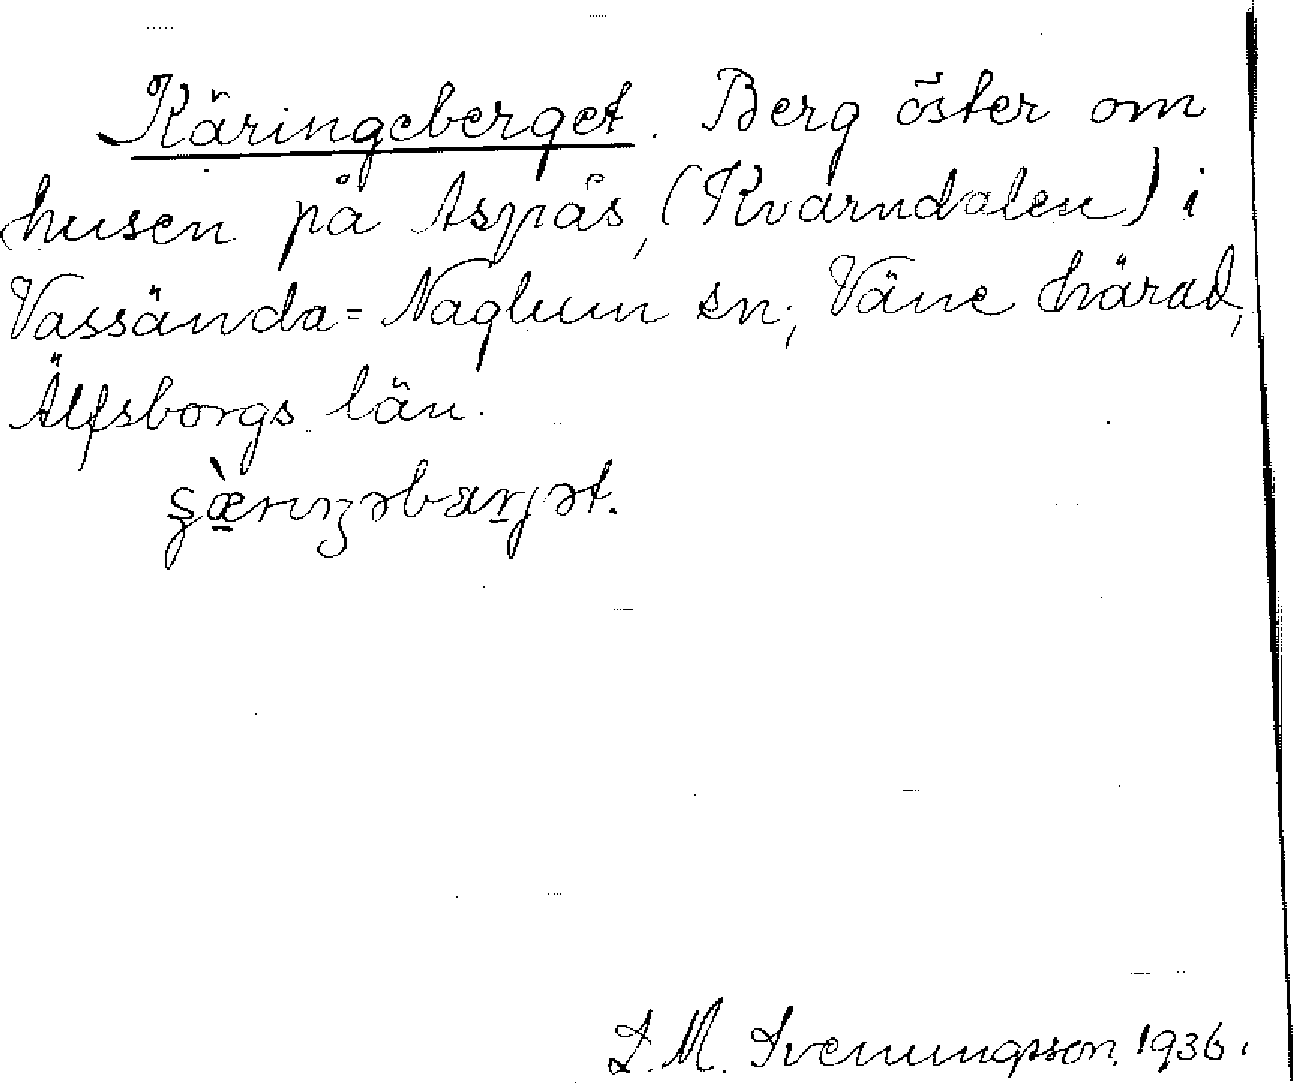 Käringeberget. Berg öster om
husen på Aspås, (Kvarndalen) i
Vassända=Naglum sn; Väne härad,
Älfsborgs län.
J.M. Svenungsson. 1936.